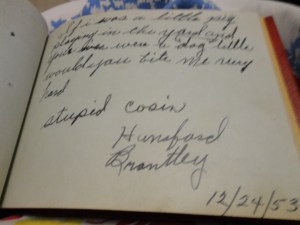 If i was a little pig
playing in the yard and
you were a dog little
would you bite me very
hard
stupid cosin
Hansford
Brantley
12/24/53